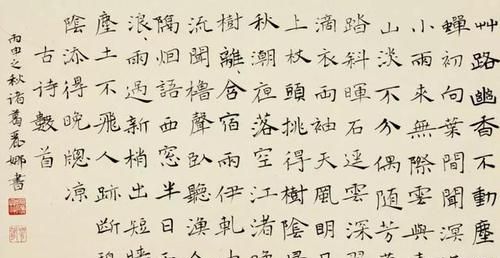 艸路幽香不動塵
蟬初向葉間聞溟
小雨来無際雲與
山淡不分偶随芳
踏斜暉石逕雲深
滴衣兩袖天風明
上杖頭挑得樹陰
秋潮夜落空江渚晚
樹離々含宿雨伊軋
流聞櫓聲卧聽漁人
隔烟語西窗半日
浪々雨過新梢出短墙
塵土不飛人跡斷碧
陰添得晚窓凉
古詩數首
丙申之秋諸葛麗娜書